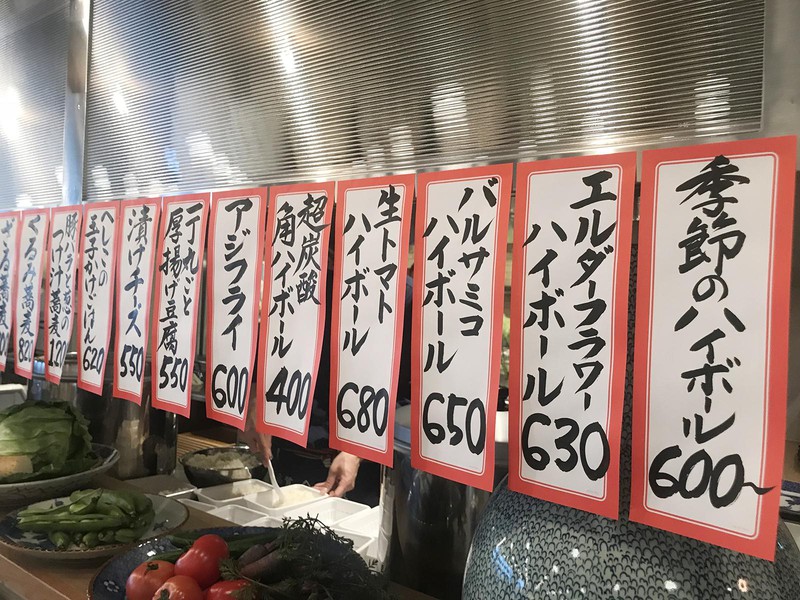 季節のハイボール
600〜
エルダーフラワー
ハイボール
630
バルサミコ
ハイボール
650
生トマト
ハイボール
680
超炭酸
角ハイボール
400
アジフライ
600
一丁丸ごと
厚揚げ豆腐
550
漬けチーズ
550
へしこの
玉子かけごはん
620
豚バラと葱の
つけ蕎麦
くるみ蕎麦
ざる蕎麦